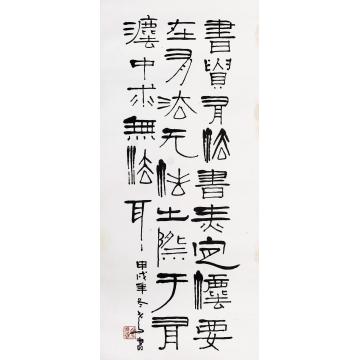 書貴有法書定灋要
在有法无法之際于有
灋中求無法耳
甲戌年冬書